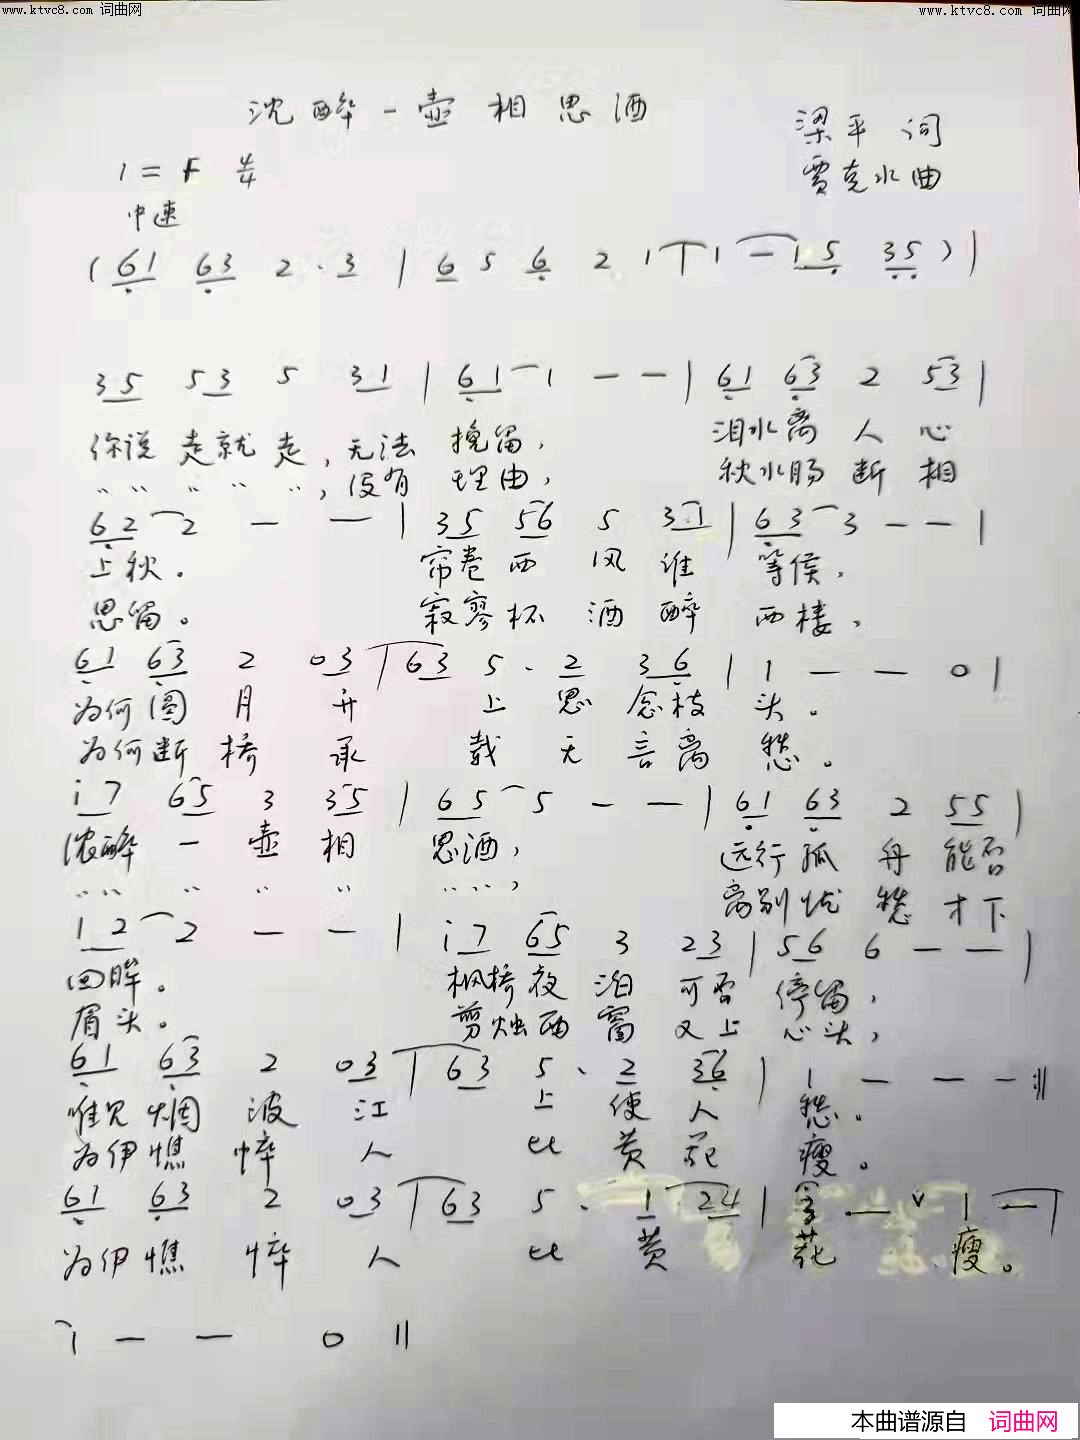 www.ktvc8.com 词曲网 www.ktvc8.com 词曲网
沈醉一壶相思酒
梁平 词
1=F 4/4
贾克水曲
中速
(61 63 2·3 | 6 5 6 2 1 | 1 — 1 5 35) |
35 53 5 31 | 61 1 — — | 61 63 2 53 |
你说走就走,无法挽留, 泪水离人心
〃〃〃〃〃,没有理由, 秋水肠断相
62 2 — — | 35 56 5 31 | 63 3 — — |
上秋。 帘卷西风谁等侯,
思留。 寂寥杯酒醉西楼,
61 63 2 03 | 63 5· 2 36 | 1 — — 0 |
为何圆月升上思念枝头。
为何断桥承载无言离愁。
i7 65 3 35 | 65 5 — — | 61 63 2 55 |
浓醉一壶相思酒, 远行孤舟能否
〃〃〃〃〃〃〃, 离别忧愁才下
12 2 — — | i7 65 3 23 | 56 6 — — |
回眸。 枫桥夜泊可否停留,
眉头。 剪烛西窗又上心头,
61 63 2 03 | 63 5· 2 36 | 1 — — — :||
唯见烟波江上使人愁。
为伊憔悴人比黄花瘦。
61 63 2 03 | 63 5· 1 24 | — ∨ 1 — |
为伊憔悴人比黄花瘦。
1 — — 0 ||
本曲谱源自 词曲网